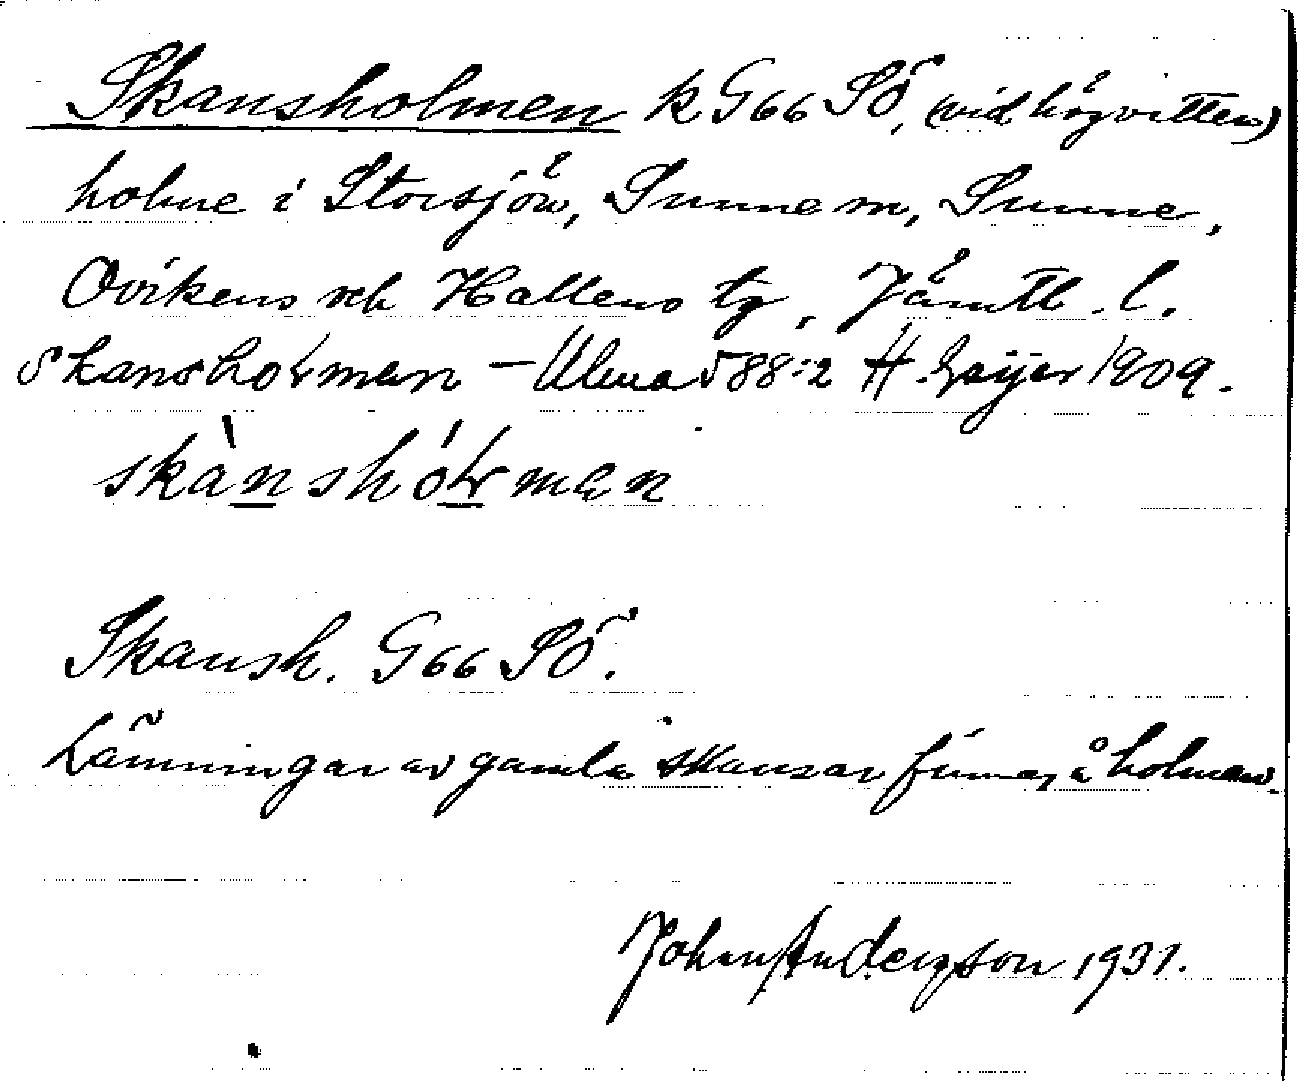 Skansholmen k G66 SÖ, (vid högvatten)
holme i Storsjön, Sunne sn, Sunne,
Ovikens och Hallens tg, Jämtl. l.
skanshoɽmen – Ulma 588:2 H. Geijer 1909.
skànshóɽmen
Skansh. G66 SÖ.
Lämningar av gamla skansar finnas å holmen.
John Anderson 1931.